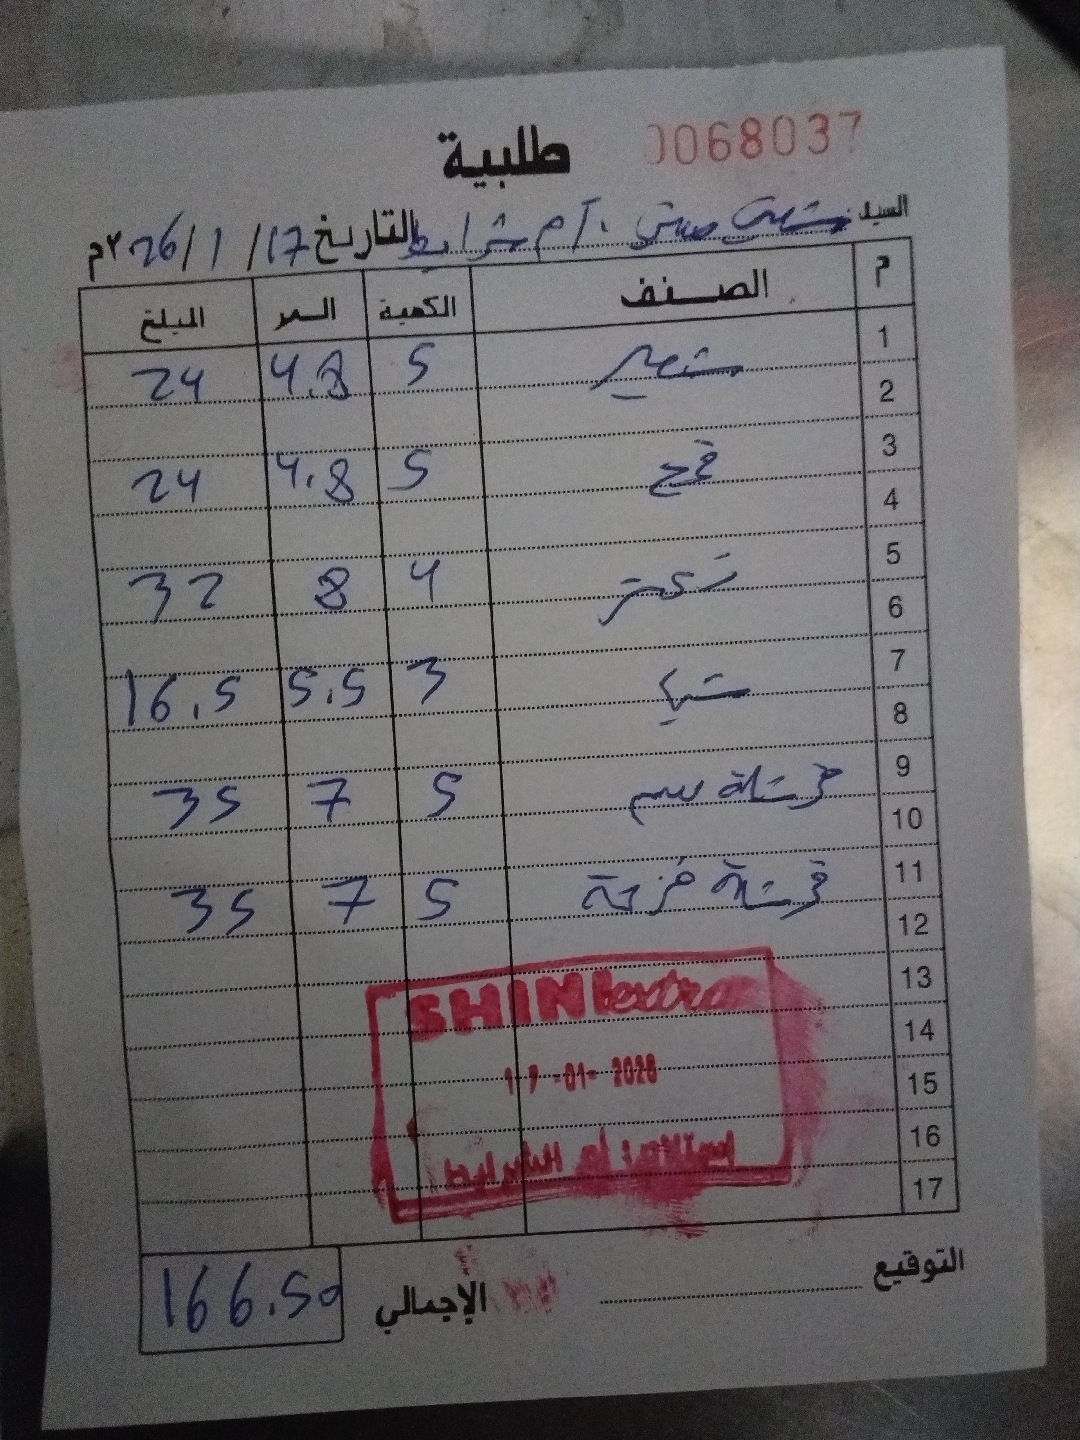 طلبية 0068037
السيد التاريخ 17/ 1 /26 ٢م
م الصنف الكمية السعر المبلغ
1 شعير 5 4.8 24
2
3 قمح 5 4.8 24
4
5 4 8 32
6
7 3 5.5 16.5
8
9 5 7 35
10
11 5 7 35
12
13
14
15
16
17
SHINI extra
17 -01- 2026
استلام: أم الشرايط
الإجمالي 166.50
التوقيع